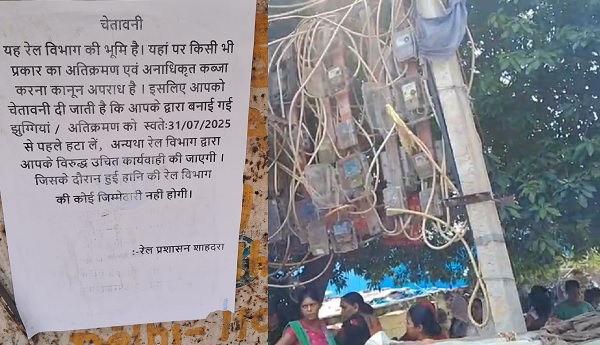 चेतावनी
यह रेल विभाग की भूमि है। यहां पर किसी भी
प्रकार का अतिक्रमण एवं अनाधिकृत कब्जा
करना कानून अपराध है । इसलिए आपको
चेतावनी दी जाती है कि आपके द्वारा बनाई गई
झुग्गियां / अतिक्रमण को स्वतेः31/07/2025
से पहले हटा लें, अन्यथा रेल विभाग द्वारा
आपके विरुद्ध उचित कार्यवाही की जाएगी ।
जिसके दौरान हुई हानि की रेल विभाग
की कोई जिम्मेदारी नही होगी।
:-रेल प्रशासन शाहदरा